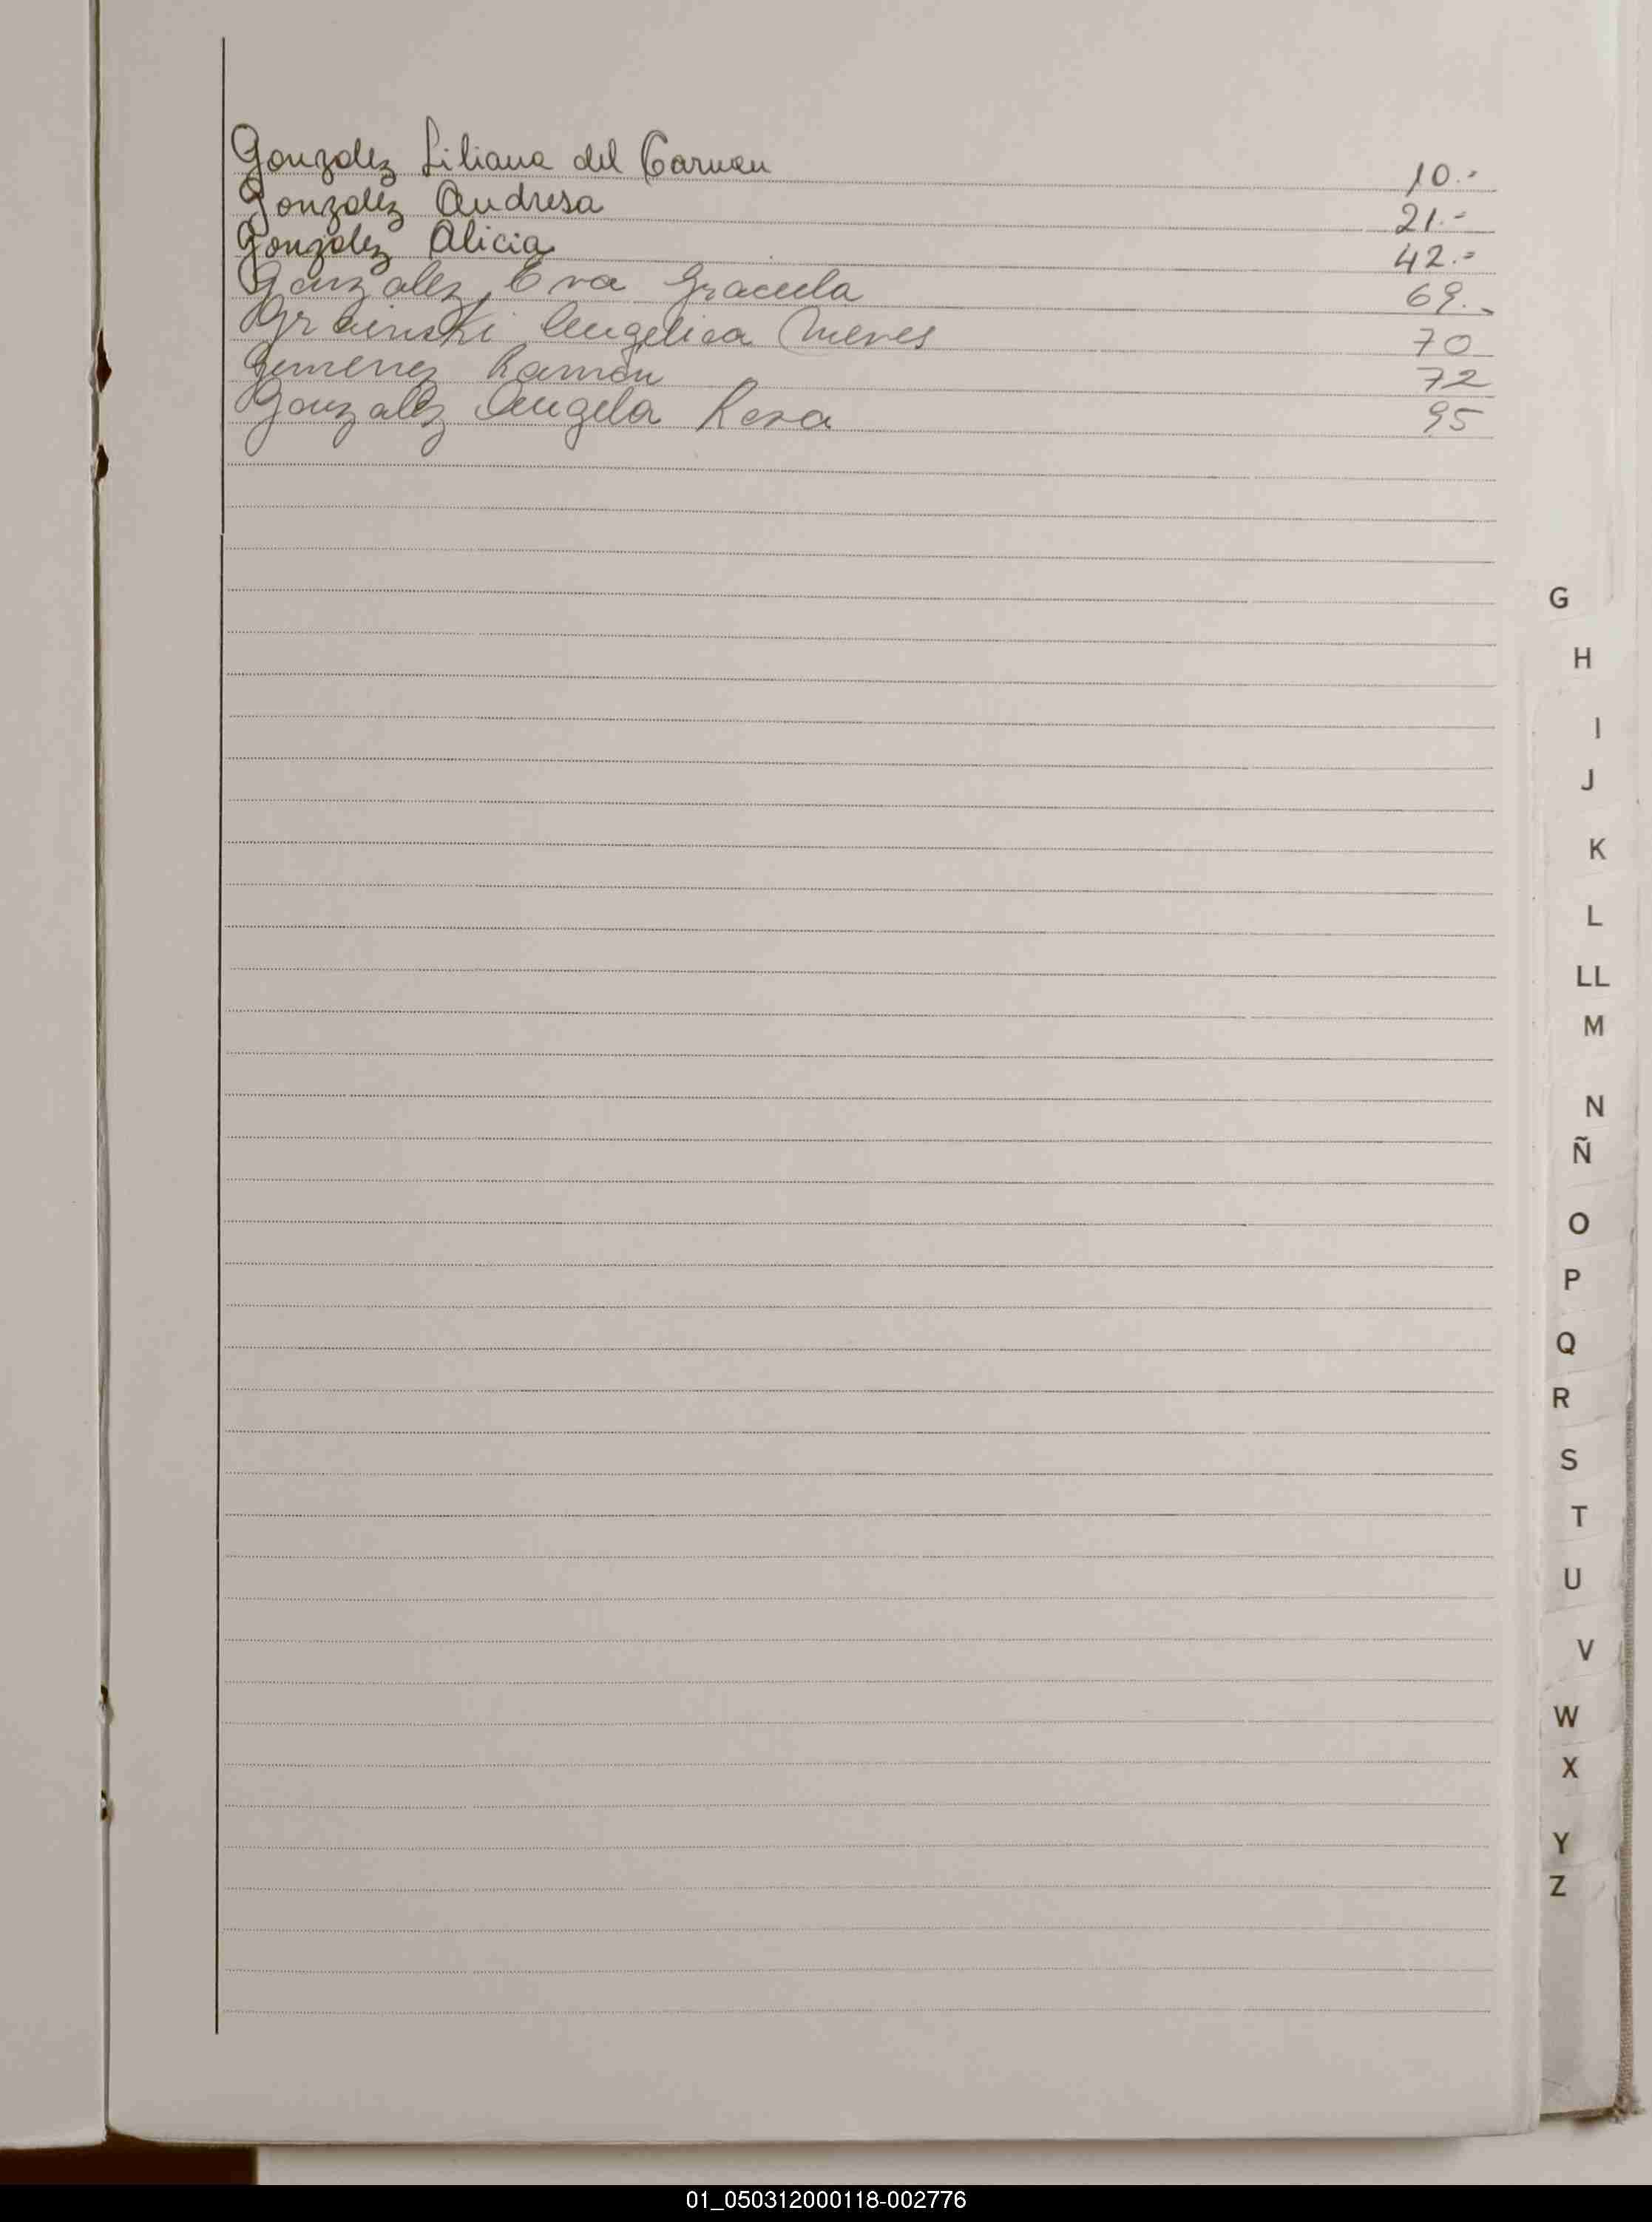 Gonzalez Liliana del Carmen 10.-
Gonzalez Andresa 21.-
Gonzalez Alicia 42.-
Gonzalez, Eva Graciela 69.-
Angelica Nieves 70
Gimenez Ramón 72
Gonzalez Angela Rosa 95
G
H
I
J
K
L
LL
M
N
Ñ
O
P
Q
R
S
T
U
V
W
X
Y
Z
01_050312000118-002776